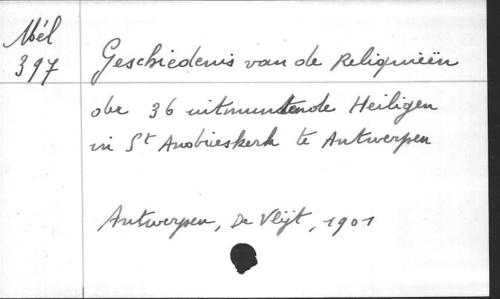 Mél
397
Geschiedenis van de Reliquieën
der 36 uitmuntende Heiligen
in St Andrieskerk te Antwerpen
Antwerpen, De Vlijt, 1901